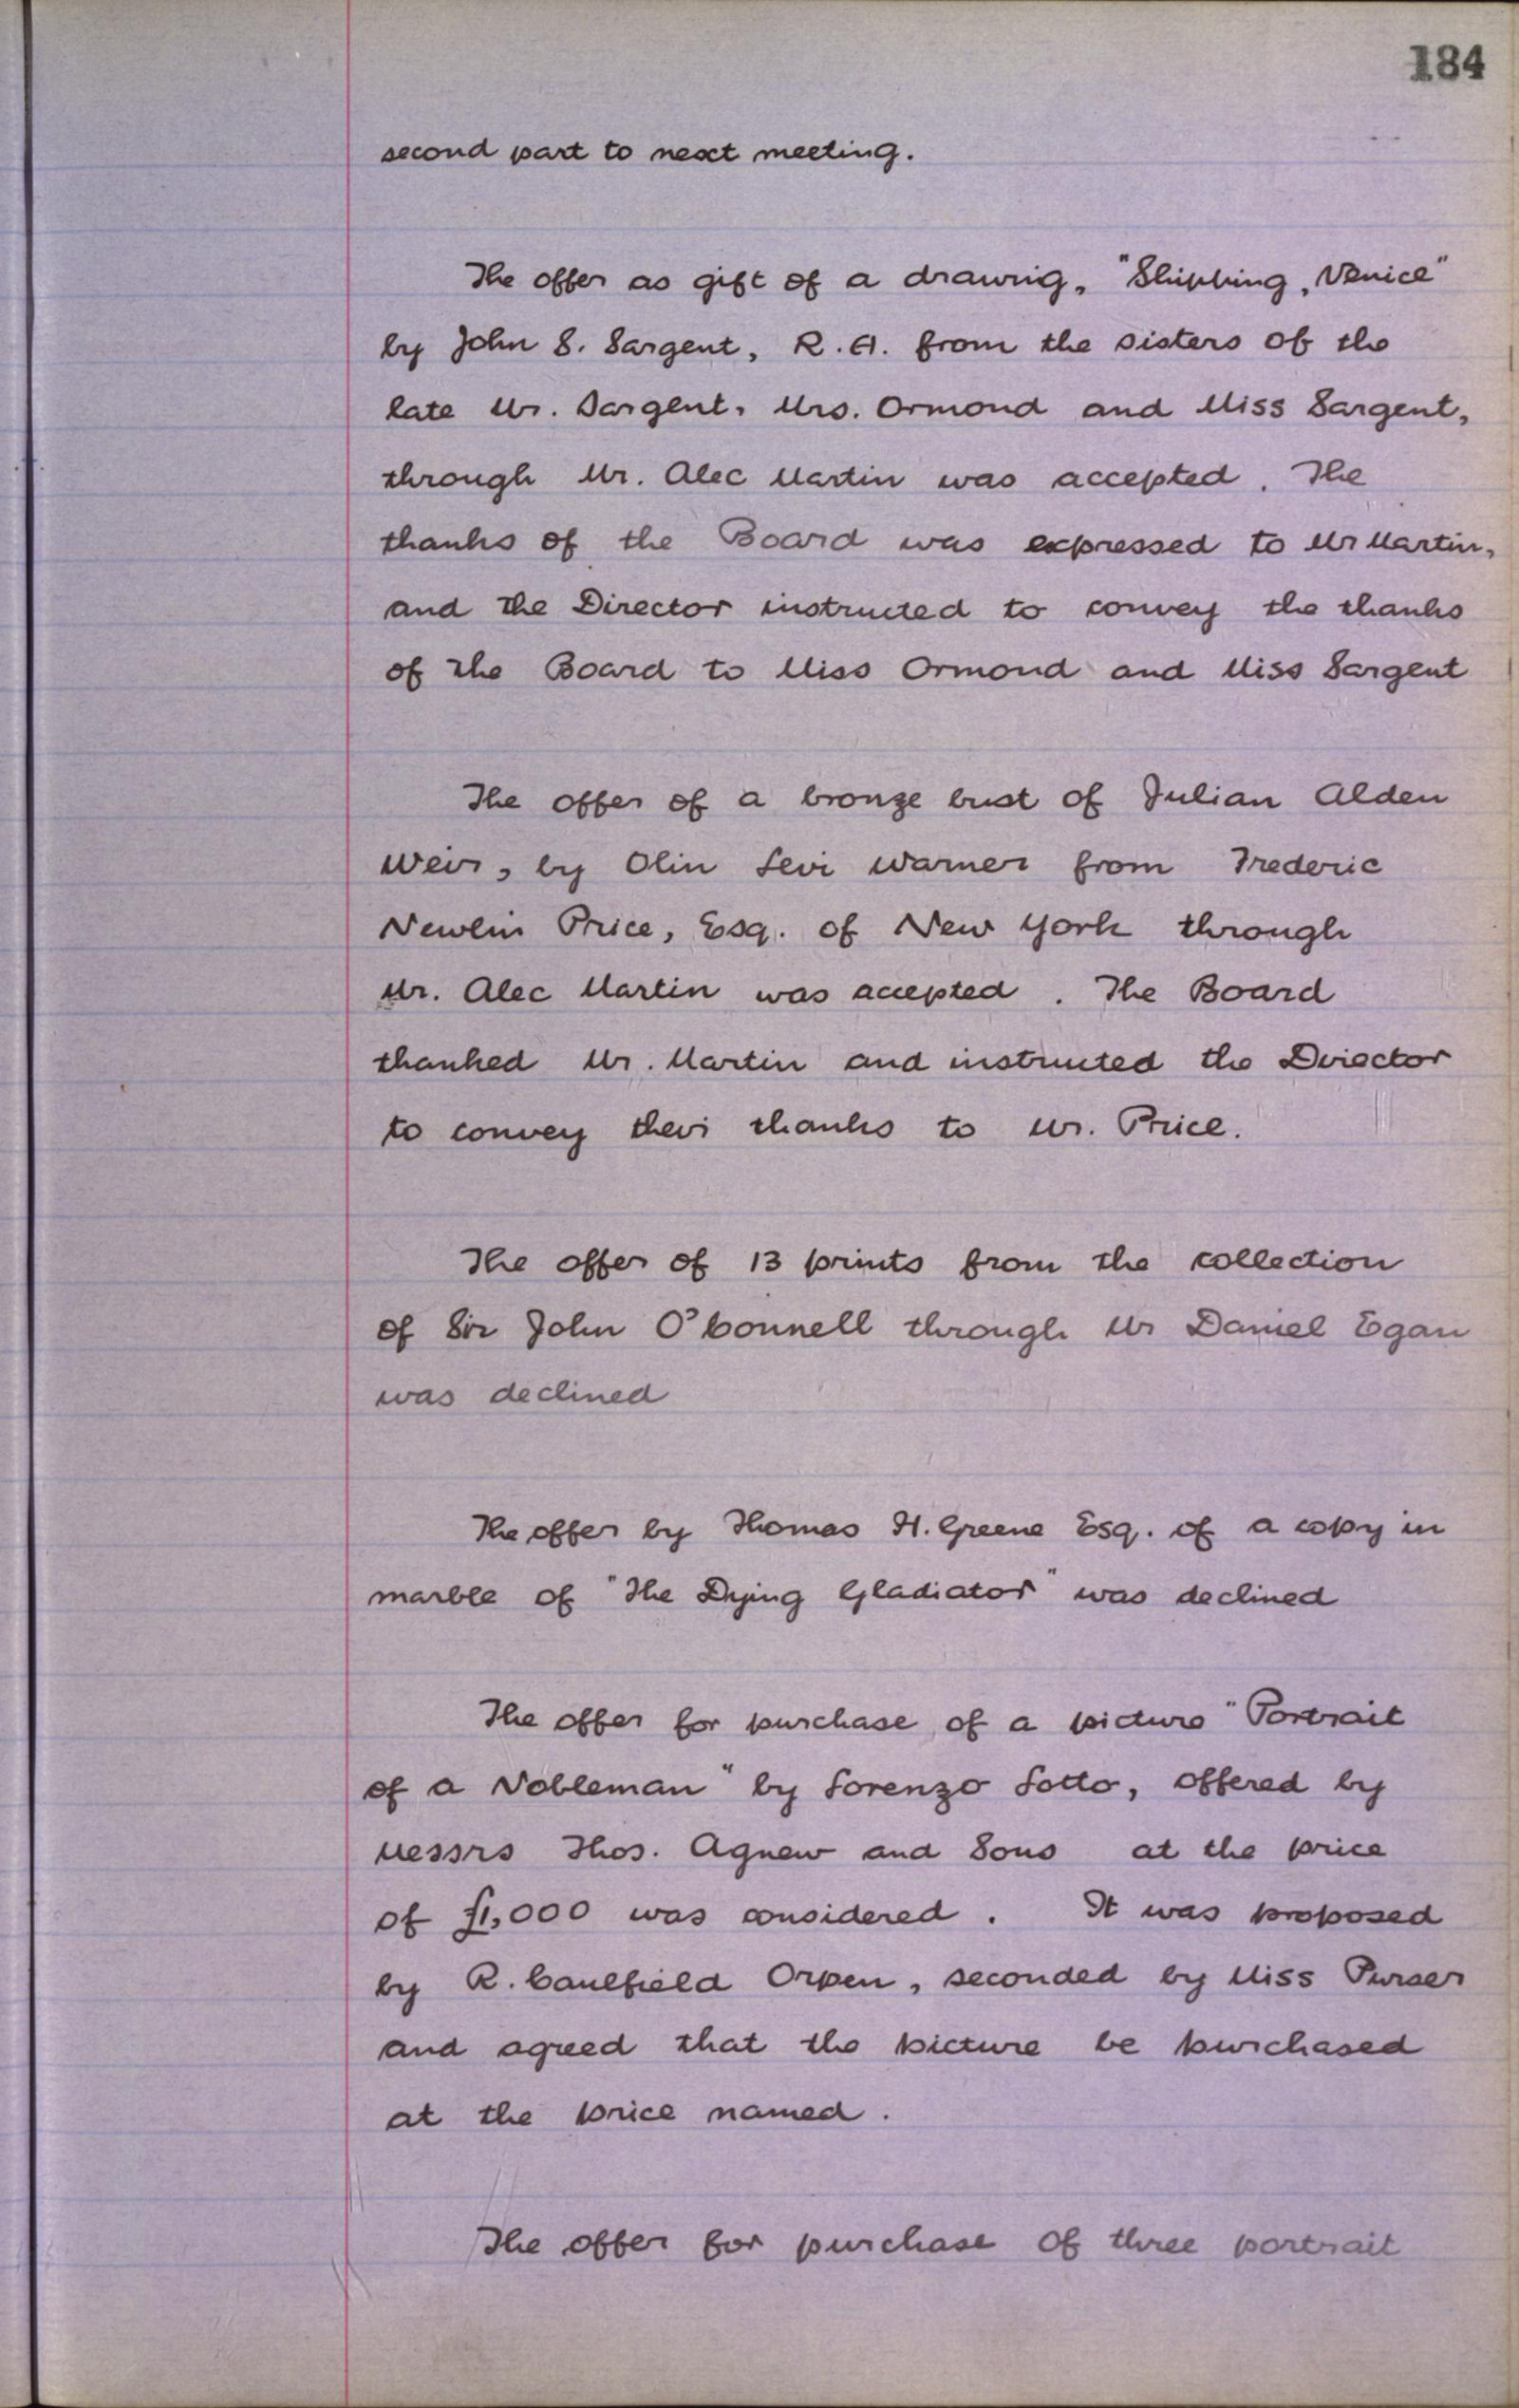 184
second part to next meeting.
The offer as gift of a drawing, "Shipping, Venice"
by John S. Sargent, R.A. from the sisters of the
late Mr. Sargent, Mrs. Ormond and Miss Sargent,
through Mr. Alec Martin was accepted. The
thanks of the Board was expressed to Mr Martin,
and the Director instructed to convey the thanks
of the Board to Miss Ormond and Miss Sargent
The offer of a bronze bust of Julian Alden
Weir, by Olin Levi Warner from Frederic
Newlin Price, Esq. of New York through
Mr. Alec Martin was accepted. The Board
thanked Mr. Martin and instructed the Director
to convey their thanks to Mr. Price.
The offer of 13 prints from the collection
of Sir John O'Connell through Mr Daniel Egan
was declined
The offer by Thomas H. Greene Esq. of a copy in
marble of "The Dying Gladiator" was declined
The offer for purchase of a picture "Portrait
of a Nobleman" by Lorenzo Lotto, offered by
Messrs Thos. Agnew and Sons at the price
of £1,000 was considered. It was proposed
by R. Caulfield Orpen, seconded by Miss Purser
and agreed that the picture be purchased
at the price named.
The offer for purchase of three portrait